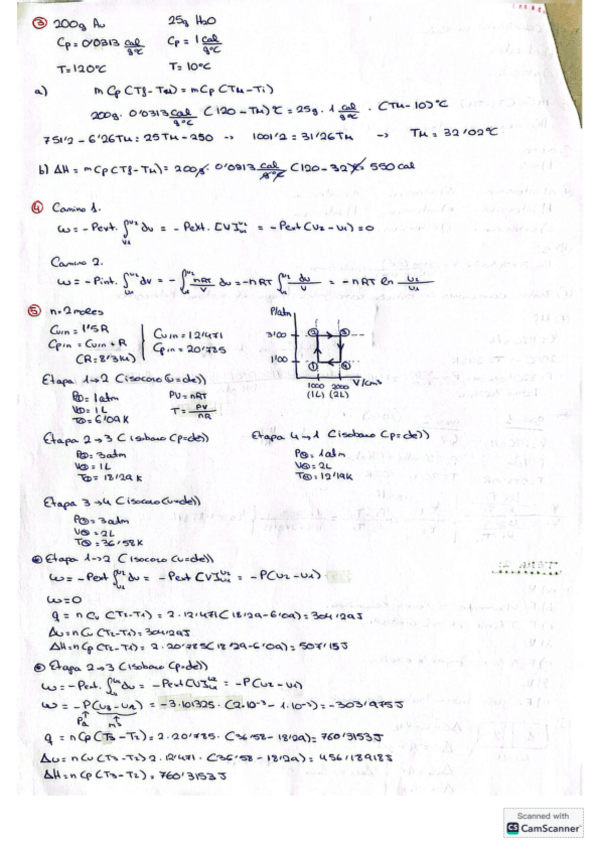 ③ 200g Au 25g H2O
Cp = 0'0313 cal/g°C Cp = 1 cal/g°C
T = 120°C T = 10°C
a) m Cp (Tf - TM) = m Cp (TM - Ti)
200g · 0'0313 cal/g°C (120 - TM)°C = 25g · 1 cal/g°C · (TM - 10)°C
751'2 - 6'26TM = 25TM - 250 -> 1001'2 = 31'26TM -> TM = 32'02°C
b) ΔH = m Cp (Tf - TM) = 200g · 0'0313 cal/g°C (120 - 32)°C = 550 cal
④ Camino 1.
ω = -Pext. ∫V1^V2 dv = -Pext. [V]V1^V2 = -Pext (V2 - V1) = 0
Camino 2.
ω = -Pint. ∫V1^V2 dv = -∫V1^V2 nRT/V dv = -nRT ∫V1^V2 dv/V = -nRT ln V2/V1
⑤ n = 2 moles
Cvm = 1'5R
Cpm = Cvm + R
(R = 8'314)
Cvm = 12'471
Cpm = 20'785
P/atm
3'00 ② ③
1'00 ① ④
1000 2000 V/cm³
(1L) (2L)
Etapa 1->2 (isocoro (v=cte))
P① = 1atm PV = nRT
V① = 1L T = PV/nR
T① = 6'09K
Etapa 2->3 (isobaro (p=cte)) Etapa 4->1 (isobaro (p=cte))
P② = 3atm P④ = 1atm
V② = 1L V④ = 2L
T② = 18'29K T④ = 12'19K
Etapa 3->4 (isocoro (v=cte))
P③ = 3atm
V③ = 2L
T③ = 36'58K
Etapa 1->2 (isocoro (v=cte))
ω = -Pext ∫V1^V2 dv = -Pext [V]V1^V2 = -P(V2 - V1)
ω = 0
q = n Cv (T2-T1) = 2 · 12'471 (18'29 - 6'09) = 304'29J
Δu = n Cv (T2-T1) = 304'29J
ΔH = n Cp (T2-T1) = 2 · 20'785 (18'29 - 6'09) = 507'15J
Etapa 2->3 (isobaro (p=cte))
ω = -Pext. ∫V1^V2 dv = -Pext [V]V1^V2 = -P(V2 - V1)
ω = -P(V3 - V2) = -3·101325 · (2·10⁻³ - 1·10⁻³) = -303'975J
Pa m³
q = n Cp (T3 - T2) = 2 · 20'785 · (36'58 - 18'29) = 760'3153J
Δu = n Cv (T3 - T2) 2 · 12'471 · (36'58 - 18'29) = 456'18918J
ΔH = n Cp (T3 - T2) = 760'3153J
Scanned with
CS CamScanner